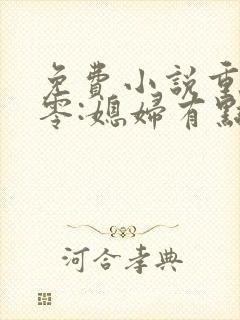 免費小說重
零:媳婦有點
河合孝典